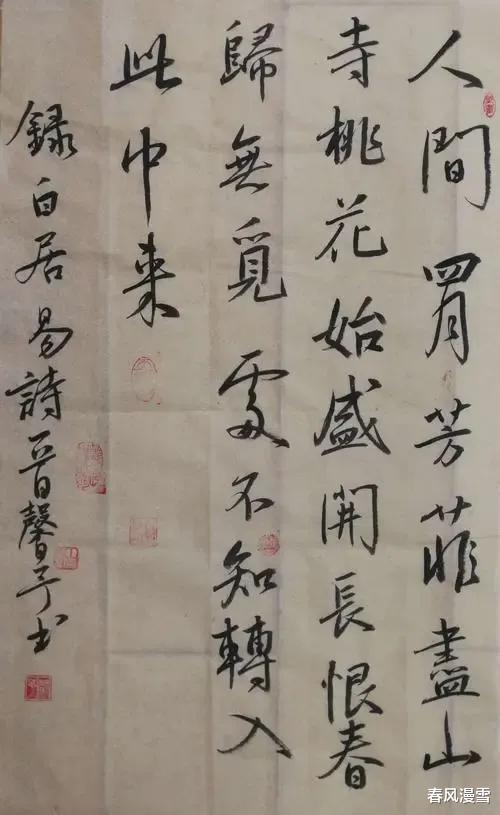 人間四月芳菲盡山
寺桃花始盛開長恨春
歸無覓處不知轉入
此中来
録白居易詩晋馨子书
春风漫雪